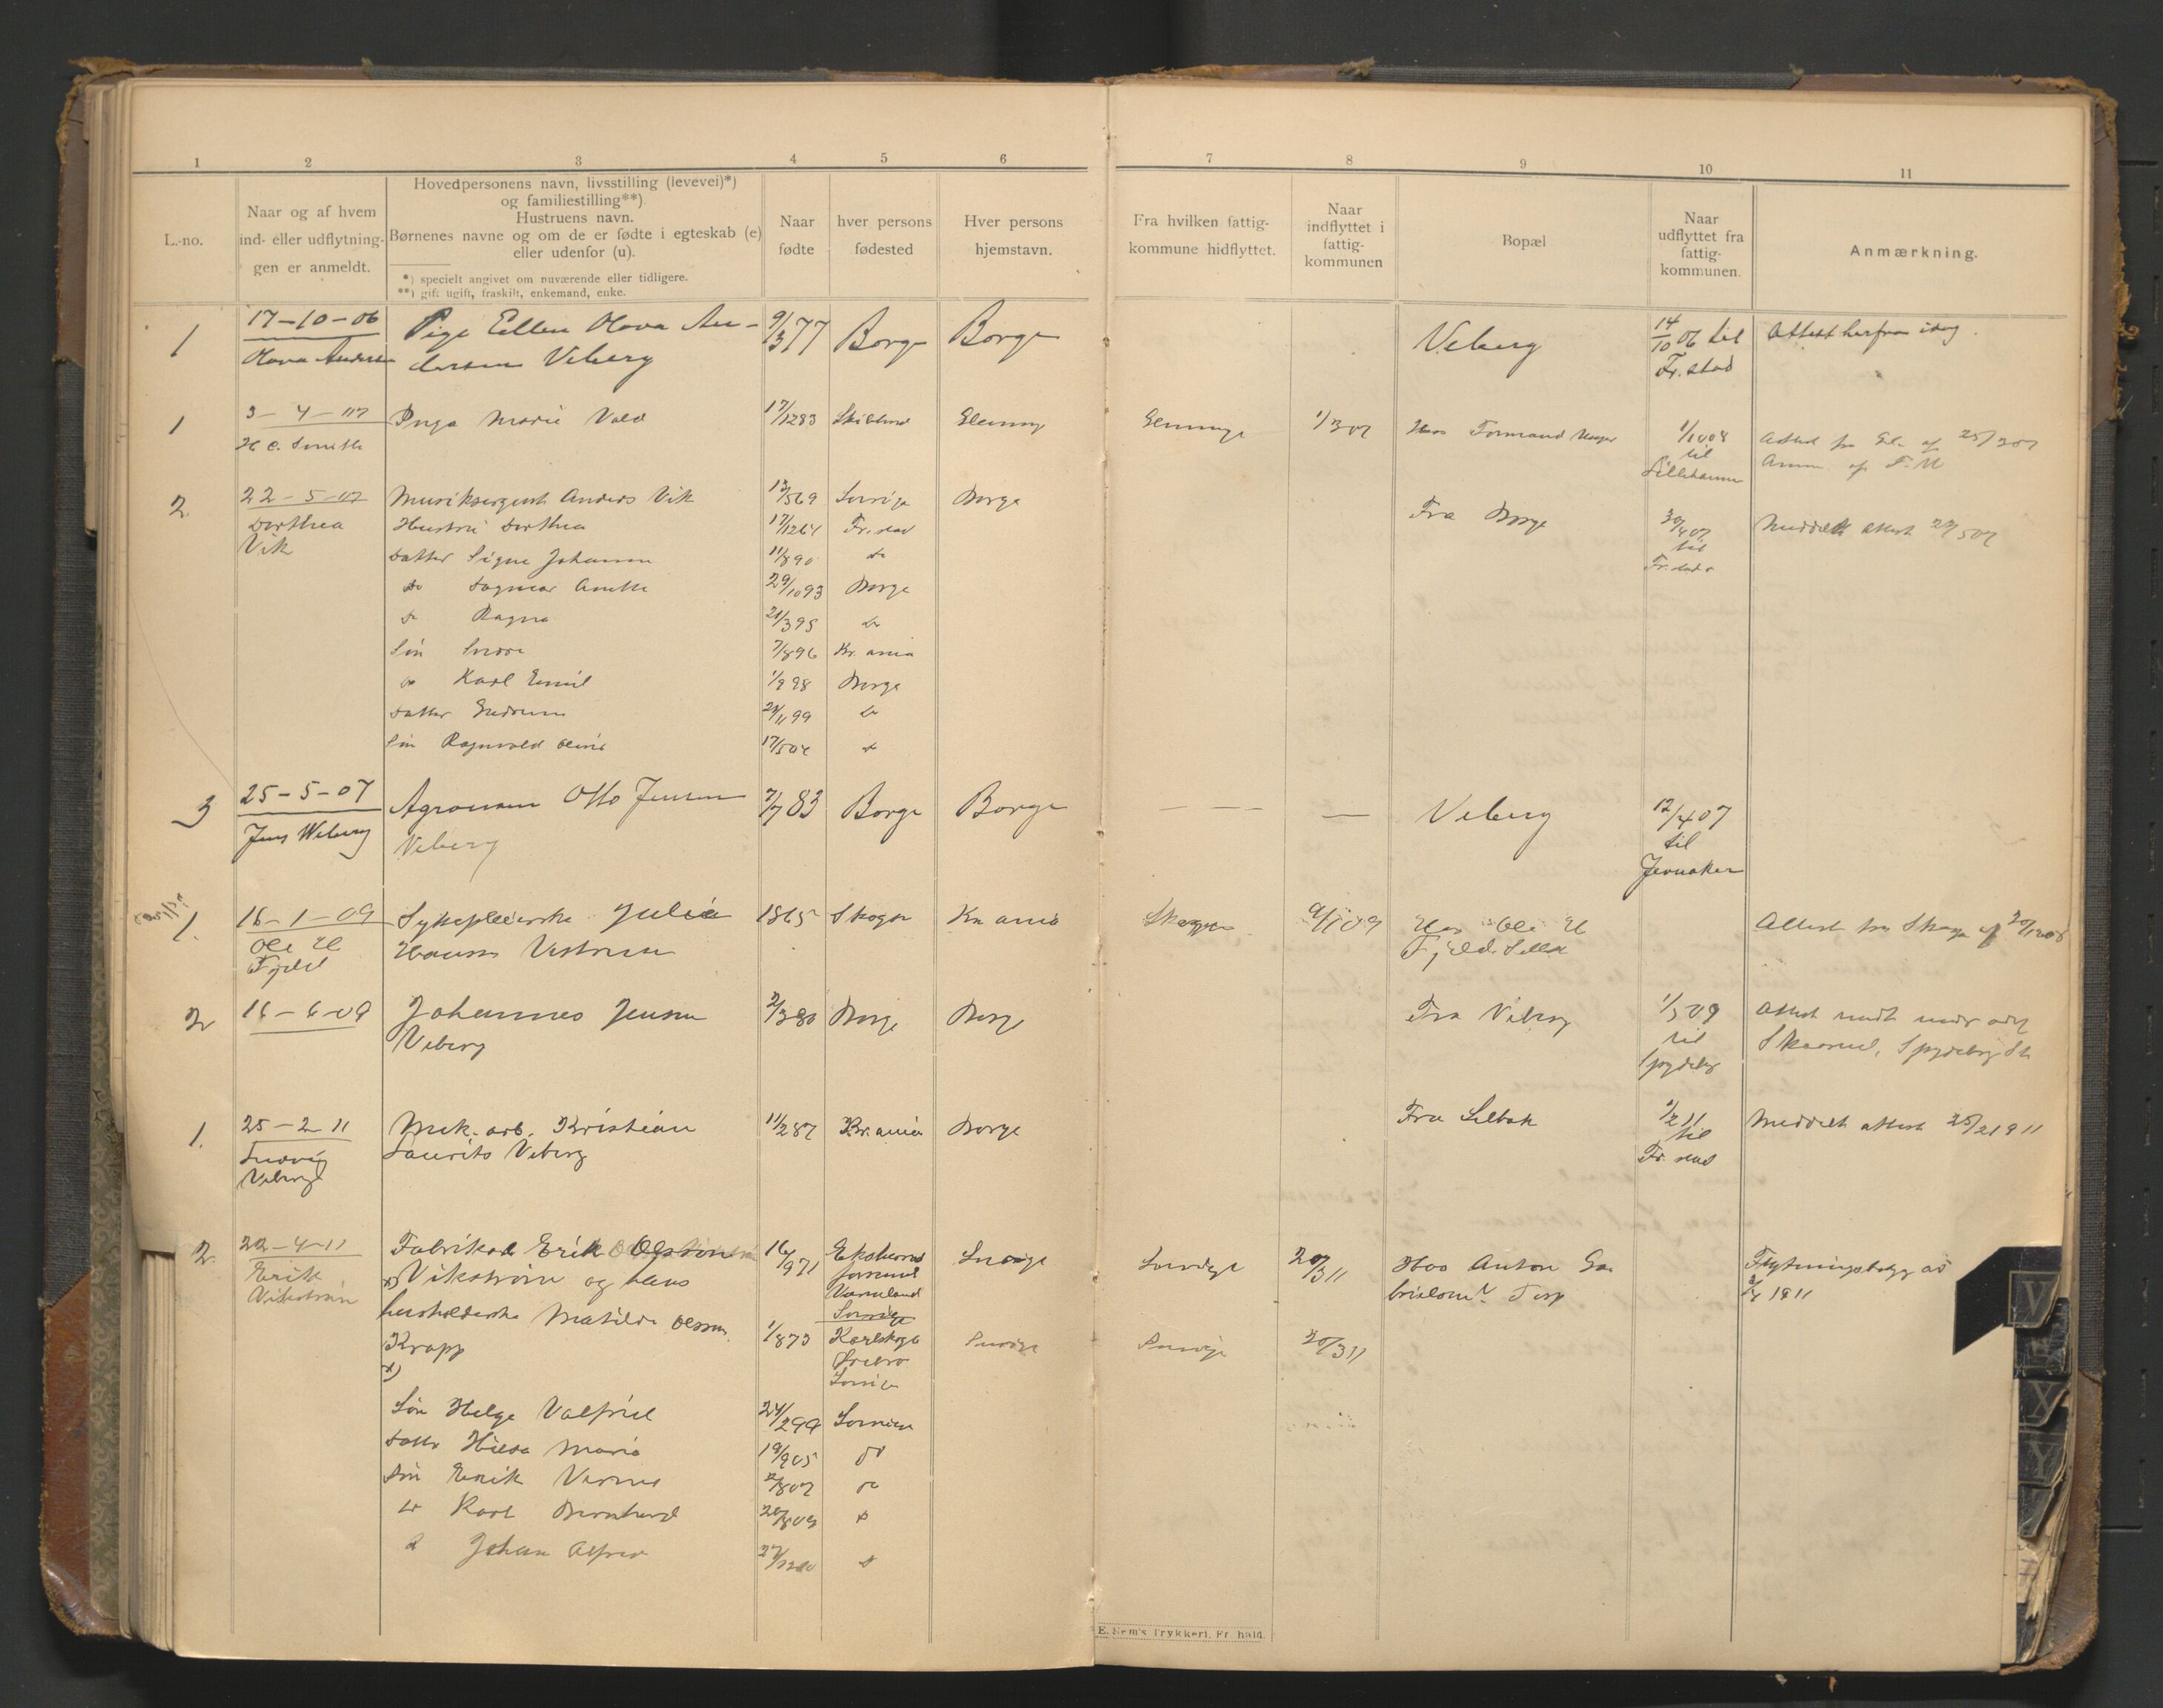 1 2 3 4 5 6 7 8 9 10 11
L.-no.
Naar og af hvem
ind- eller udflytnin-
gen er anmeldt.
Hovedpersonens navn, livsstilling (levevei)*)
og familiestilling**)
Hustruens navn.
Børnenes navne og om de er fødte i egteskab (e)
eller udenfor (u).
*) specielt angivet om nuværende eller tidligere.
**) gift ugift, fraskilt, enkemand, enke.
Naar
fødte
hver persons
fødested
Hver persons
hjemstavn.
Fra hvilken fattig-
kommune hidflyttet.
Naar
indflyttet i
fattig-
kommunen
Bopæl
Naar
udflyttet fra
fattig-
kommunen.
Anmærkning.
1 17-10-06 Pige Ellen Olava An- 9/3 77 Borge Borge Veberg 14/10 06 til Attest herfra idag.
Olava Andersen dersen Veberg Fr.stad
1 3-4-07 Inga Marie Vold 17/12 83 Glemminge 1/3 07 Hos Formand
H C. Smith til
2 22-5-07 Musiksergent Anders Vik 13/5 69 Sverige Borge Fra Borge 30/4 07 Meddelt attest 22/5 07
Dorthea Hustru Dorthea 17/12 64 Fr.stad til
Vik Datter Signe Johanne 11/8 90 do Fr.stad
do Dagmar Anette 29/10 93 Borge
do Ragna 21/3 95 do
Søn 7/8 96 Kr.ania
do Karl Emil 1/9 98 Borge
Datter Gudrun 24/11 99 do
Søn Ragnvald 17/5 04 do
3 25-5-07 Agronom Otto Jensen 7/7 83 Borge Borge — — — — Veberg 12/4 07
Jens Weberg Veberg til
Jevnaker
1. 16-1-09 Sykepleierske Julie 1865 Skoger Kr ania Skoger 9/1 09 Hos Ole H Attest fra Skoger af
Ole H Hansen Fjeld.
Fjeld
2 16-6-09 Johannes Jensen 2/3 80 Borge Borge Fra Veberg 1/5 09 Attest
Veberg til Spydeberg St
Spydeberg
1. 25-2-11 Mek. arb. Kristian 11/2 87 Kr.ania Borge Fra Selbak 1/2 11 Meddelt attest 25/2 1911
Ludvig Laurits Veberg til
Veberg Fr.stad
2. 22-4-11 Fabrikarb Erik Olsson 16/9 71 Sverige Sverige 20/3 11 Hos Anton Ga-
Erik x) Vikström og hans Värmland brielsen Torp 1911
Vikström husholderske Matilde Olsson Sverige
Krapp 1/8 73 Karlskoga Sverige Sverige 20/3 11
x) Örebro
Sverige
Søn Helge Valfrid 24/2 99 Sverige
Datter Hilda Maria 19/9 05 do
Søn Erik Verner 07 do
do Karl Bernhard 09 do
do Johan Alfred 27/12 10 do
E. Sem's Trykkeri, Fr.hald.
V
X
Y